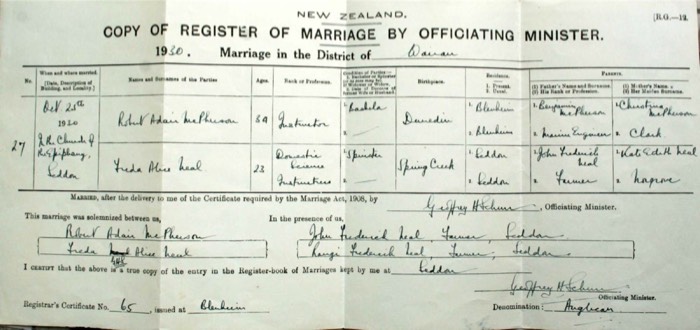 NEW ZEALAND.
[R.G.—12.
COPY OF REGISTER OF MARRIAGE BY OFFICIATING MINISTER.
1930. Marriage in the District of
No. When and where married. Names and Surnames of the Parties Age. Rank or Profession. Birthplace. Residence. Parents.
1. Present. 2. Usual. (1) Father's Name and Surname. (2) His Rank or Profession. (1) Mother's Name. (2) Her Maiden Surname.
27
Oct. 25th 1930
Robert Adair McPherson Instructor Bachelor Dunedin 1 Blenheim 1 Benjamin McPherson 1 Christina McPherson
2 Blenheim 2 Marine Engineer 2 Clark
Church of Epiphany, Seddon
Freda Alice Neal 23 Domestic Science Instructress Spinster Spring Creek 1 Seddon 1 John Frederick Neal 1 Kate Edith Neal
2 Seddon 2 Farmer 2
Married, after the delivery to me of the Certificate required by the Marriage Act, 1908, by Geoffrey H , Officiating Minister.
This marriage was solemnized between us, In the presence of us,
Robert Adair McPherson John Frederick Neal Farmer, Seddon
Freda Alice Neal Frederick Neal, Farmer, Seddon
I certify that the above is a true copy of the entry in the Register-book of Marriages kept by me at Seddon
Geoffrey H
Officiating Minister.
Registrar's Certificate No. 65, issued at Blenheim Denomination: Anglican